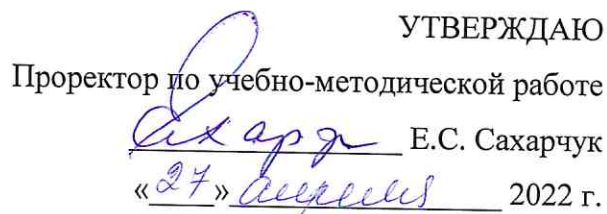 УТВЕРЖДАЮ
Проректор по учебно-методической работе
Сахарч Е.С. Сахарчук
«27» апреля 2022 г.